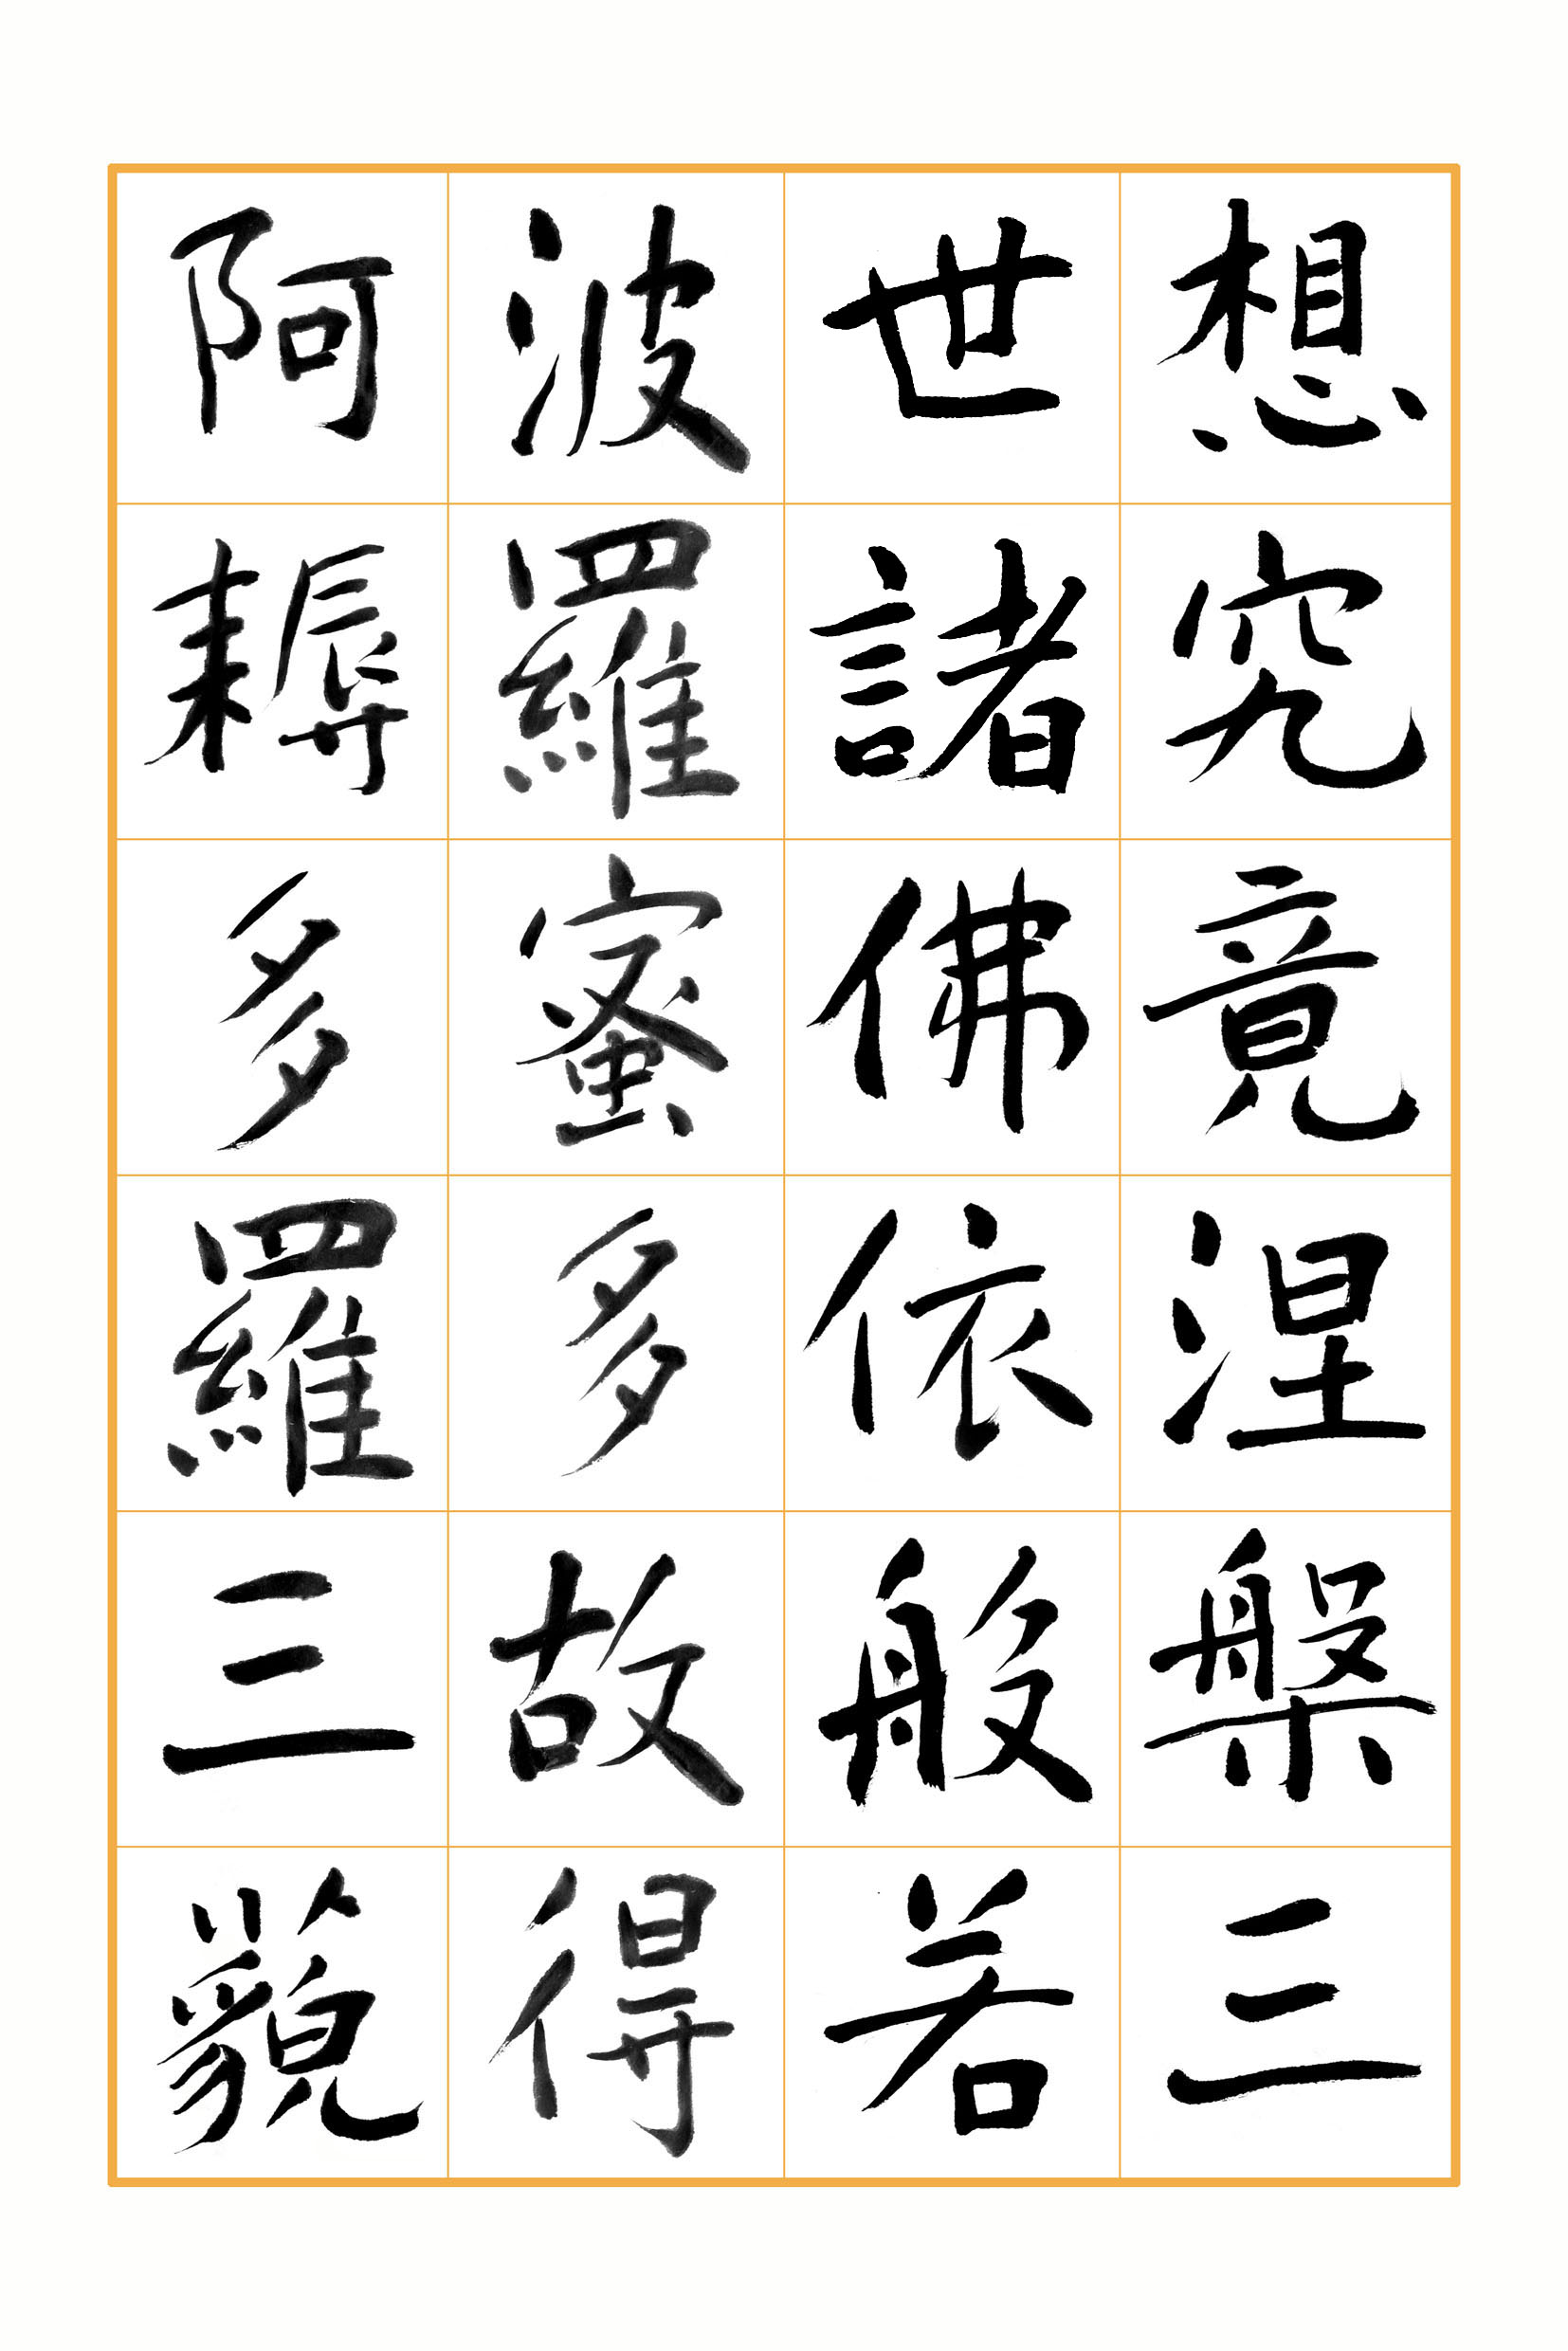 想究竟涅槃三
世諸佛依般若
波羅蜜多故得
阿耨多羅三藐